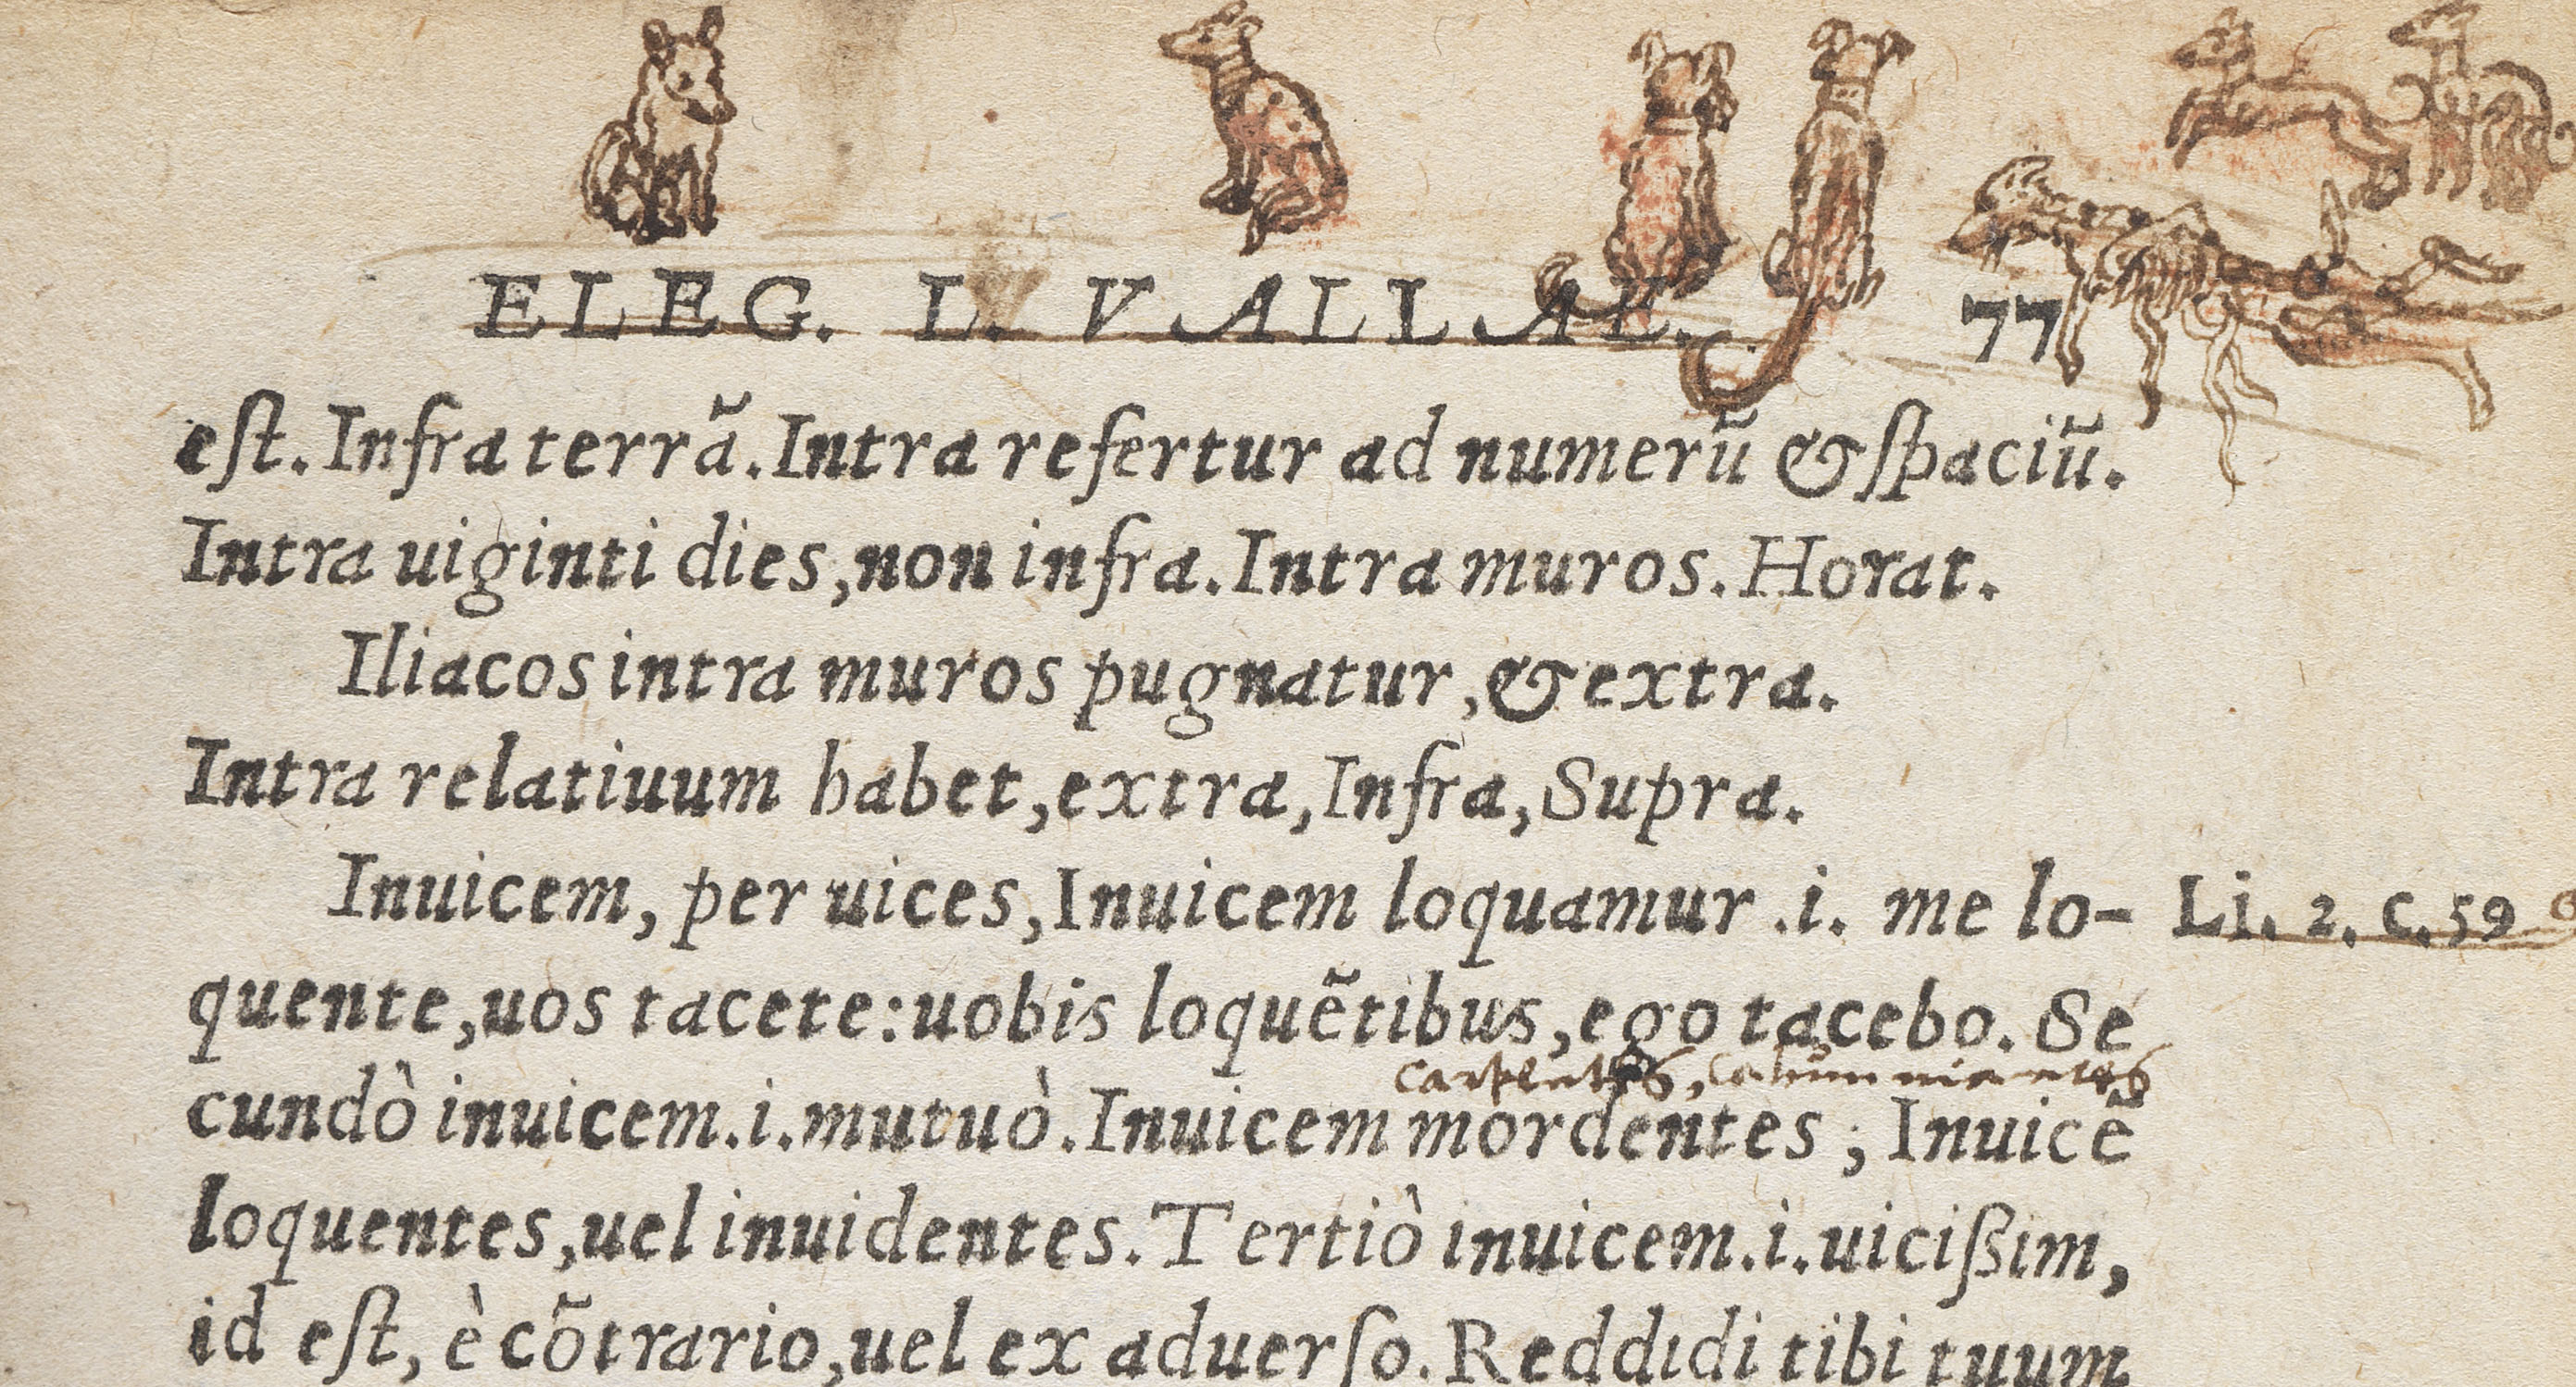 ELEG. L. VALLAE. 77
eſt. Infra terrã. Intra refertur ad numerũ & ſpaciũ.
Intra uiginti dies, non infra. Intra muros. Horat.
Iliacos intra muros pugnatur, & extra.
Intra relatiuum habet, extra, Infra, Supra.
Inuicem, per uices, Inuicem loquamur .i. me lo- Li. 2. c. 59
quente, uos tacete: uobis loquẽtibus, ego tacebo. Se
carpentes, calumniantes
cundò inuicem .i. mutuò. Inuicem mordentes; Inuicẽ
loquentes, uel inuidentes. Tertiò inuicem .i. uicißim,
id eſt, è cõtrario, uel ex aduerſo. Reddidi tibi tuum